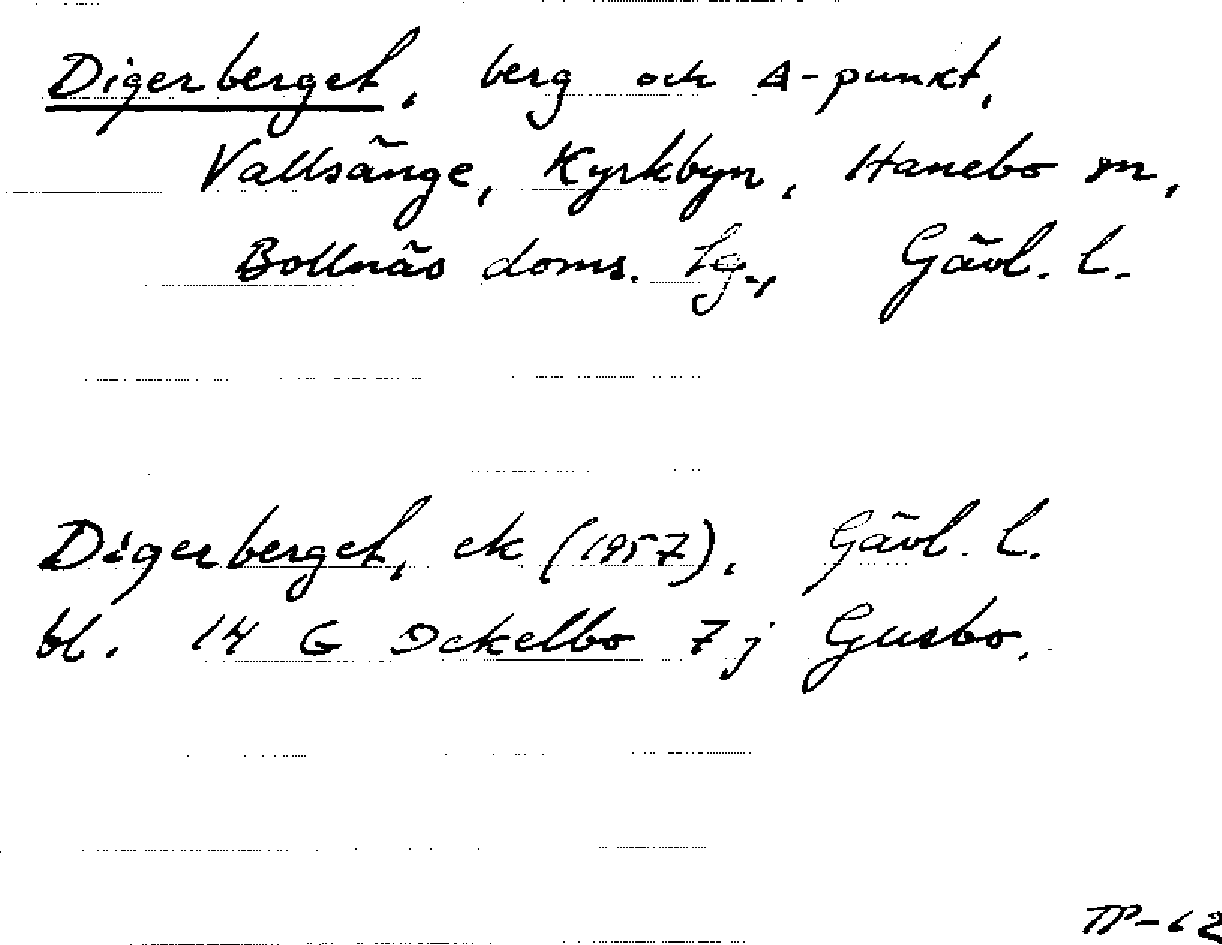 Digerberget, berg och Δ-punkt,
Vallsänge, Kyrkbyn, Hanebo sn,
Bollnäs doms. lg., Gävl. l.
Digerberget, ek (1957), Gävl. l.
bl. 14 G Ockelbo 7 j Gusbo.
TP-62